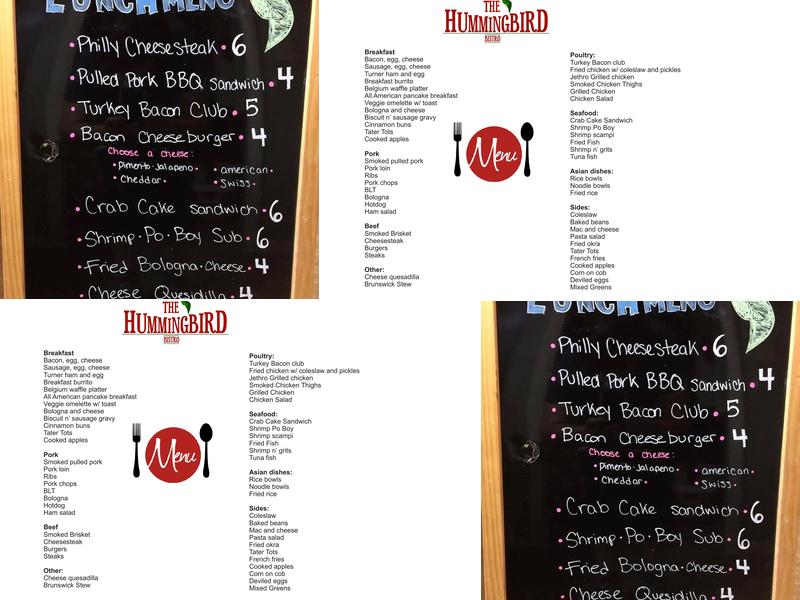 LUNCH MENU
• Philly Cheesesteak • 6
• Pulled Pork BBQ Sandwich • 4
• Turkey Bacon Club • 5
• Bacon Cheeseburger • 4
Choose a cheese:
• Pimento • Jalapeno •
• american •
• Cheddar •
• Swiss •
• Crab Cake sandwich • 6
• Shrimp • Po • Boy Sub • 6
• Fried Bologna • Cheese • 4
• Cheese Quesidilla • 4
THE
HUMMINGBIRD
BISTRO
Breakfast
Bacon, egg, cheese
Sausage, egg, cheese
Turner ham and egg
Breakfast burrito
Belgium waffle platter
All American pancake breakfast
Veggie omelette w/ toast
Bologna and cheese
Biscuit n' sausage gravy
Cinnamon buns
Tater Tots
Cooked apples
Pork
Smoked pulled pork
Pork loin
Ribs
Pork chops
BLT
Bologna
Hotdog
Ham salad
Beef
Smoked Brisket
Cheesesteak
Burgers
Steaks
Other:
Cheese quesadilla
Brunswick Stew
Menu
Poultry:
Turkey Bacon club
Fried chicken w/ coleslaw and pickles
Jethro Grilled chicken
Smoked Chicken Thighs
Grilled Chicken
Chicken Salad
Seafood:
Crab Cake Sandwich
Shrimp Po Boy
Shrimp scampi
Fried Fish
Shrimp n' grits
Tuna fish
Asian dishes:
Rice bowls
Noodle bowls
Fried rice
Sides:
Coleslaw
Baked beans
Mac and cheese
Pasta salad
Fried okra
Tater Tots
French fries
Cooked apples
Corn on cob
Deviled eggs
Mixed Greens
THE
HUMMINGBIRD
BISTRO
Breakfast
Bacon, egg, cheese
Sausage, egg, cheese
Turner ham and egg
Breakfast burrito
Belgium waffle platter
All American pancake breakfast
Veggie omelette w/ toast
Bologna and cheese
Biscuit n' sausage gravy
Cinnamon buns
Tater Tots
Cooked apples
Pork
Smoked pulled pork
Pork loin
Ribs
Pork chops
BLT
Bologna
Hotdog
Ham salad
Beef
Smoked Brisket
Cheesesteak
Burgers
Steaks
Other:
Cheese quesadilla
Brunswick Stew
Menu
Poultry:
Turkey Bacon club
Fried chicken w/ coleslaw and pickles
Jethro Grilled chicken
Smoked Chicken Thighs
Grilled Chicken
Chicken Salad
Seafood:
Crab Cake Sandwich
Shrimp Po Boy
Shrimp scampi
Fried Fish
Shrimp n' grits
Tuna fish
Asian dishes:
Rice bowls
Noodle bowls
Fried rice
Sides:
Coleslaw
Baked beans
Mac and cheese
Pasta salad
Fried okra
Tater Tots
French fries
Cooked apples
Corn on cob
Deviled eggs
Mixed Greens
LUNCH MENU
• Philly Cheesesteak • 6
• Pulled Pork BBQ Sandwich • 4
• Turkey Bacon Club • 5
• Bacon Cheeseburger • 4
Choose a cheese:
• Pimento • Jalapeno •
• american •
• Cheddar •
• Swiss •
• Crab Cake sandwich • 6
• Shrimp • Po • Boy Sub • 6
• Fried Bologna • Cheese • 4
• Cheese Quesidilla • 4